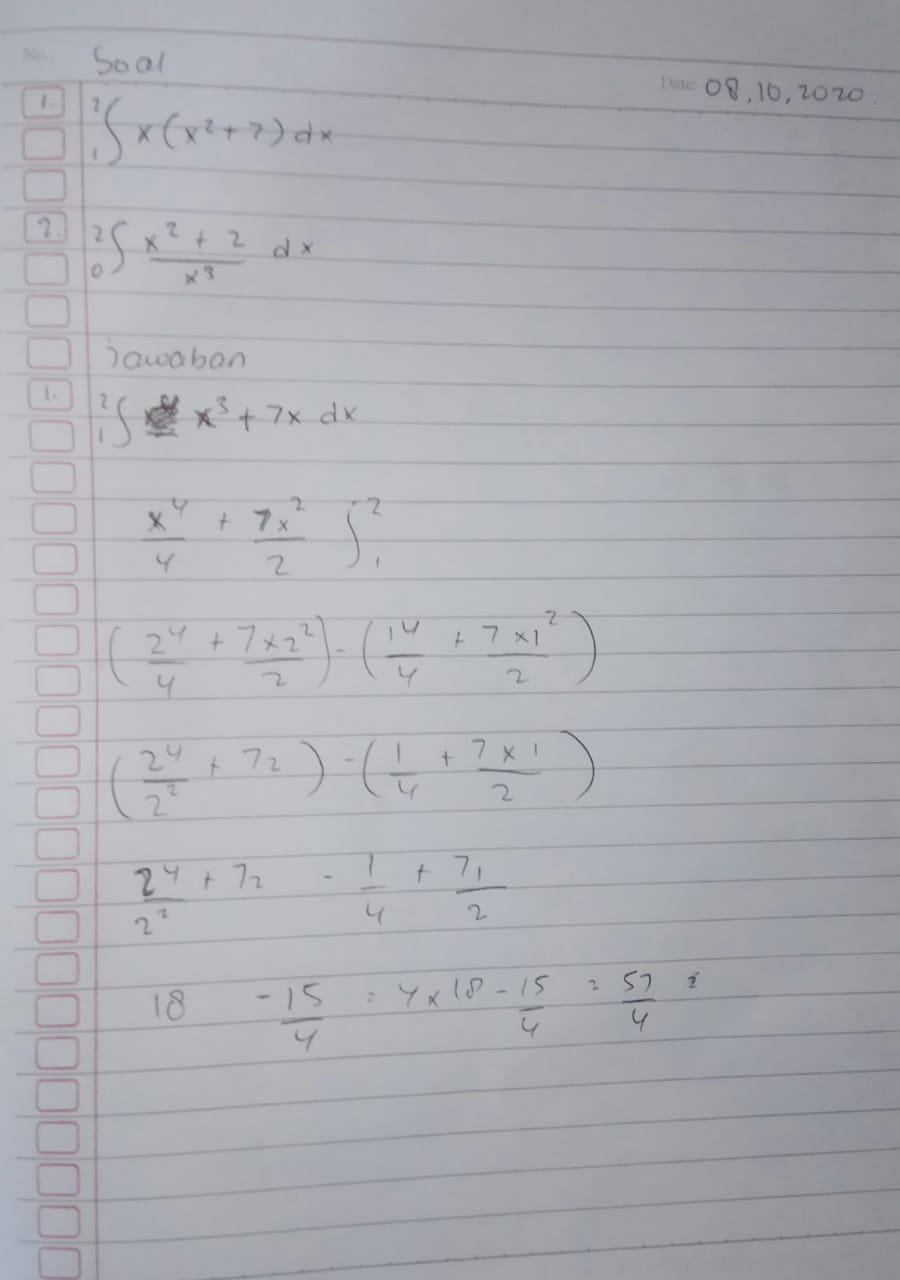 No.: Soal
Date: 08,10,2020
1. ₁²∫ x(x² + 7) dx
2. ₀²∫ (x² + 2)/x³ dx
jawaban
1. ₁²∫ x³ + 7x dx
x⁴/4 + 7x²/2 ∫₁²
(2⁴/4 + 7×2²/2) - (1⁴/4 + 7×1²/2)
(2⁴/2² + 7₂) - (1/4 + 7×1/2)
2⁴/2² + 7₂ - 1/4 + 7₁/2
18 - 15/4 = 4×18 - 15/4 = 57/4